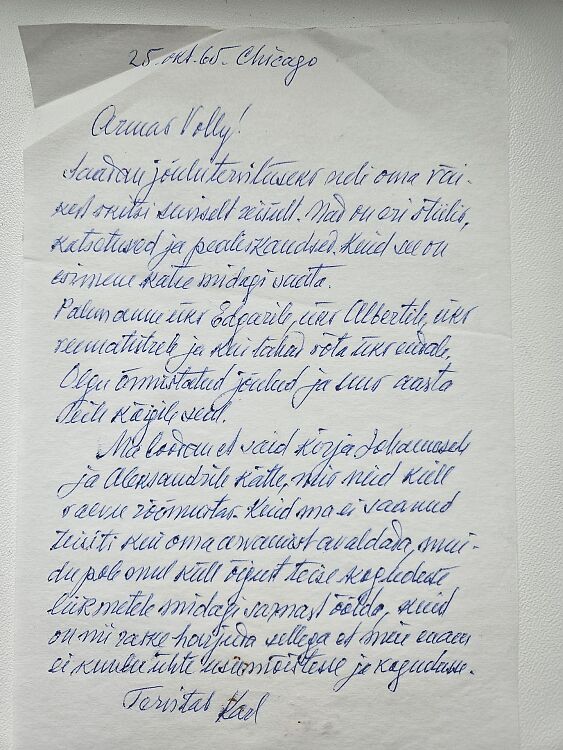 25. okt. 65. Chicago
Armas Volly!
Saadan jõulutervituseks neli oma väi-
kest sketsi reisult. Nad on eri stiilis,
katsetused ja pealiskaudsed. Kuid see on
esimene katse midagi saata.
Palun anna üks Edgarile, üks Albertile, üks
ja kui tahad võta üks endale,
Olgu õnnistatud jõulud ja uus aasta
Teile kõigile seal.
Ma loodan et said kirja Johannesele
ja Aleksandrile kätte, mis neid küll
rõõmustas. Kuid ma ei saanud
teisiti kui oma arvamist avaldada, mui-
du pole mul küll õigust teise koguduse
liikmetele midagi sarnast öelda, kuid
on nii raske harjuda sellega et meie enam
ei kuulu ühte usumõistesse ja kogudusse.
Tervitab Karl